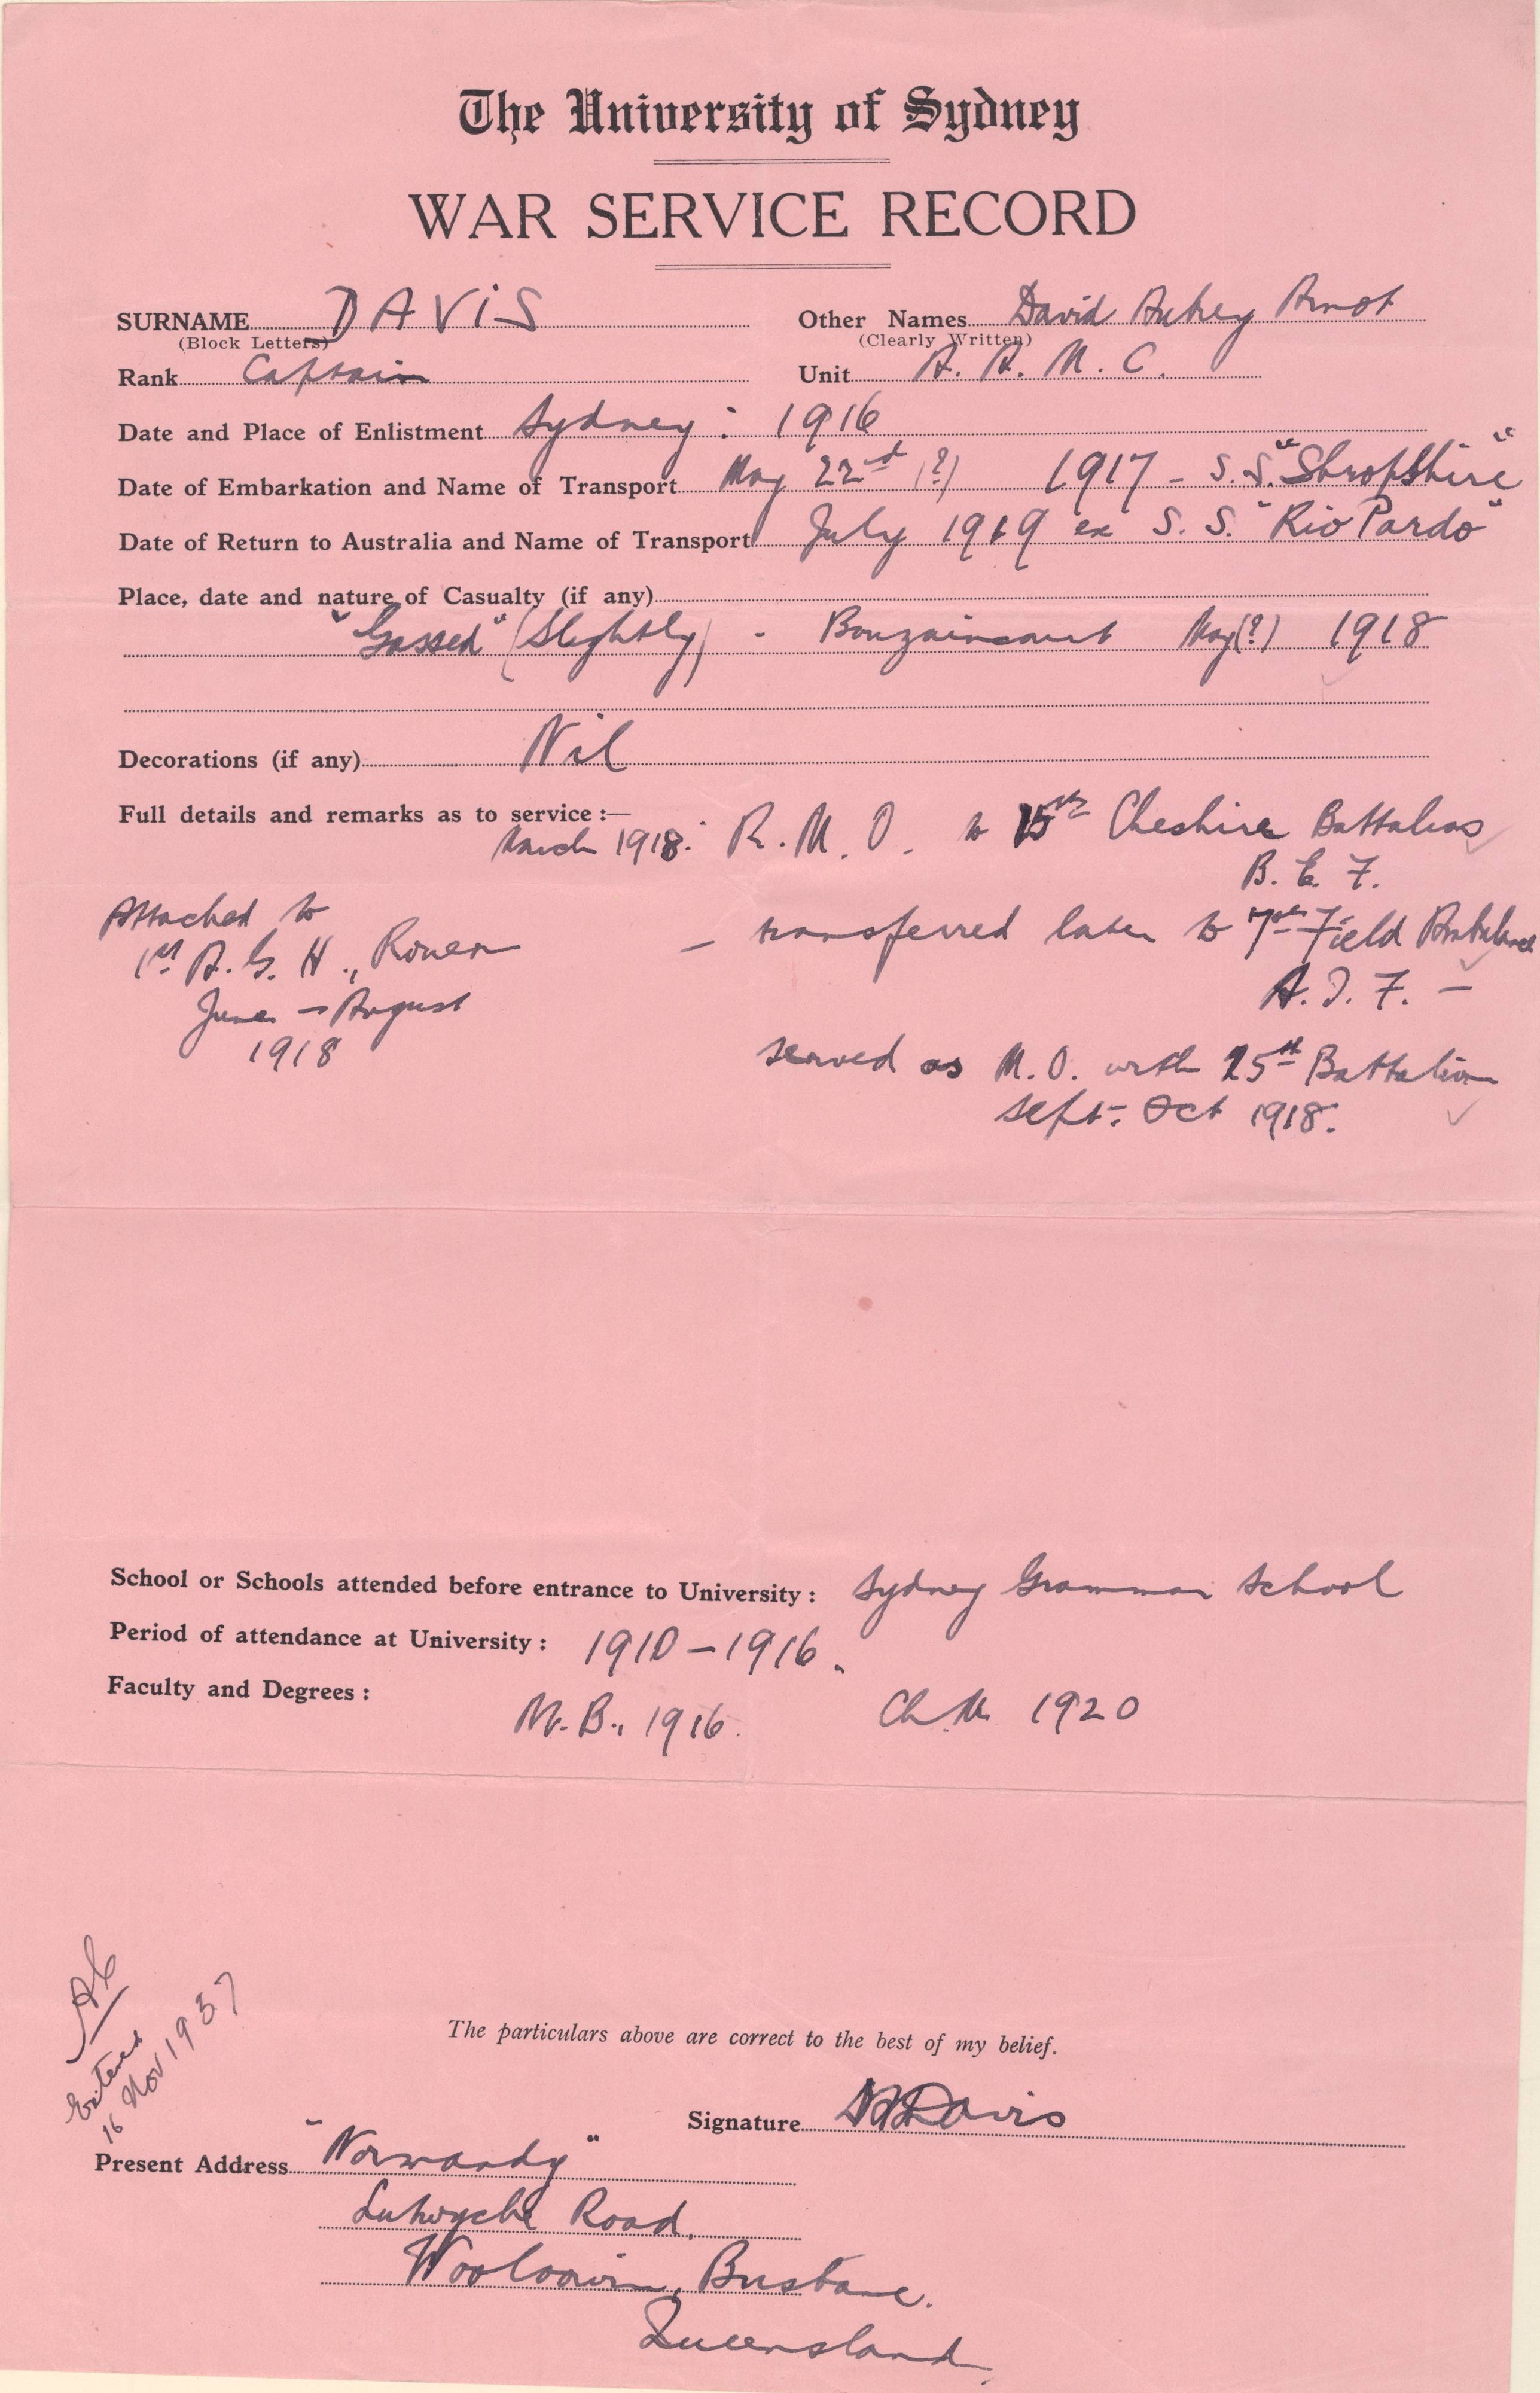 The University of Sydney
WAR SERVICE RECORD
SURNAME DAVIS Other Names David Aubrey Arnot
(Block Letters) (Clearly Written)
Rank Captain Unit A. A. M. C.
Date and Place of Enlistment Sydney : 1916
Date of Embarkation and Name of Transport May 22nd (?) 1917 - S.S. "Shropshire"
Date of Return to Australia and Name of Transport July 1919 ex S. S. "Rio Pardo"
Place, date and nature of Casualty (if any)
"Gassed" (Slightly) - Bouzaincourt May(?) 1918
Decorations (if any) Nil
Full details and remarks as to service :—
March 1918: R. M. O. to 15th Cheshire Battalion
B. E. F.
Attached to
1st A. G. H., Rouen
June - August
1918
- transferred later to 7th Field Ambulance
A. I. F. -
served as M. O. with 25th Battalion
Sept- Oct 1918.
School or Schools attended before entrance to University : Sydney Grammar School
Period of attendance at University : 1910 - 1916.
Faculty and Degrees :
M. B., 1916. Ch. M. 1920
Entered
16 Nov 1937
The particulars above are correct to the best of my belief.
Signature DADavis
Present Address "Normandy"
Lutwyche Road,
Wooloowin, Brisbane.
Queensland.